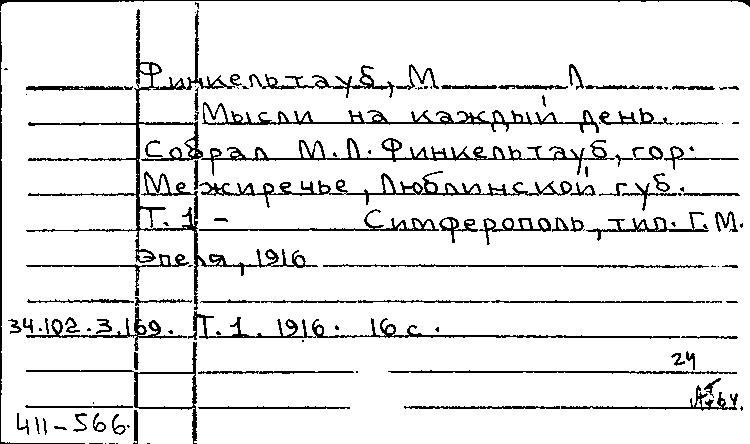 Финкельтауб, М Л
Мысли на каждый день.
Собрал М.Л. Финкельтауб, гор.
Межиречье, Люблинской губ.
Т. 1 - Симферополь, тип. Г.М.
Эпеля, 1916
34.102.3.169. Т. 1. 1916. 16 с.
24
411-566